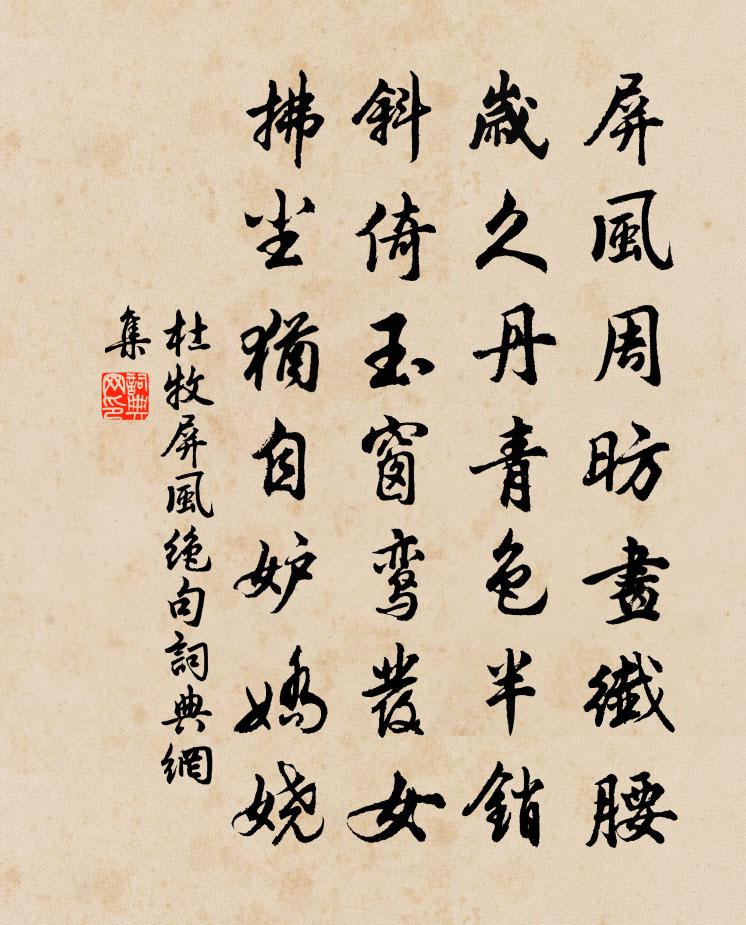 屏風周昉畫纖腰
歲久丹青色半銷
斜倚玉窗鸾發女
拂尘猶自妒嬌娆
杜牧屏風絶句詞典網
集
詞典网印